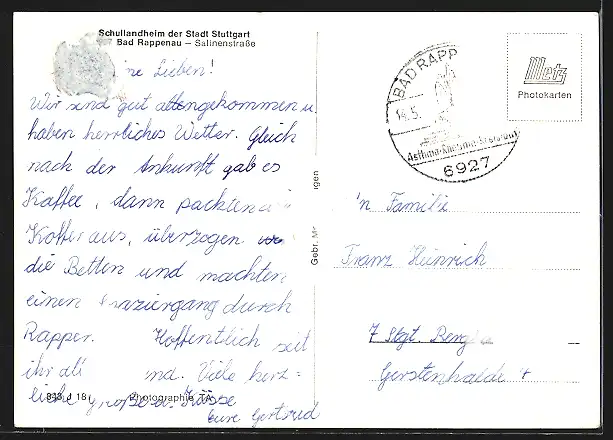 Schullandheim der Stadt Stuttgart
Bad Rappenau – Salinenstraße
ne Lieben!
Wir sind gut angekommen u.
haben herrliches Wetter. Gleich
nach der Ankunft gab es
Kaffee, dann packten
Koffer aus, überzogen
die Betten und machten
einen aziergang durch
Rappen. Hoffentlich seit
ihr all nd. Viele herz-
liche Grüße u. Küsse
Eure Gertrud
943 J 18
Photographie TA
Gebr. Me igen
BAD RAPP
14.5.
Asthma-Rheuma-
6927
Metz
Photokarten
'n Familie
Franz Heinrich
7 Stgt.
Gerstenhalde